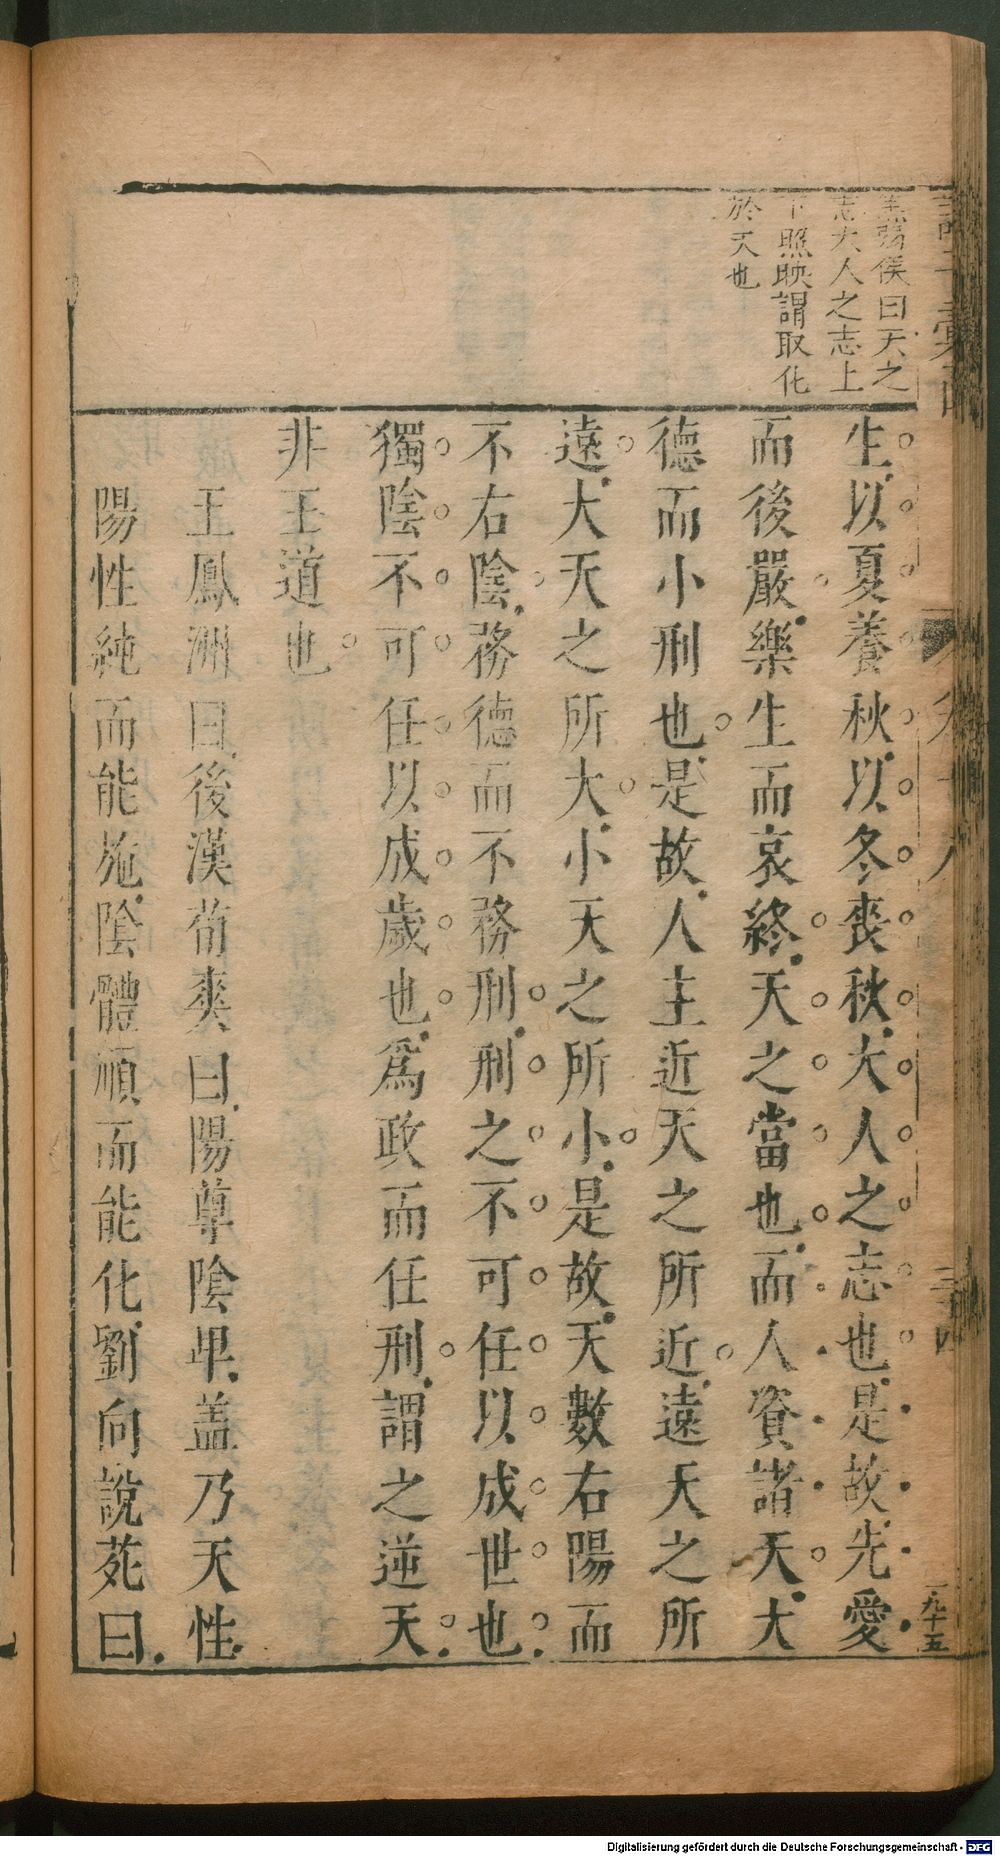 侯曰天之
志大人之志上
下照映謂取化
於天也
生以夏養秋以冬喪秋大人之志也是故先愛
而後嚴樂生而哀終天之當也而人資諸天大
德而小刑也是故人主近天之所近遠天之所
遠大天之所大小天之所小是故天數右陽而
不右陰務德而不務刑刑之不可任以成世也
獨陰不可任以成歲也爲政而任刑謂之逆天
非王道也
王鳳洲曰後漢荀爽曰陽尊陰卑盖乃天性
陽性純而能施陰體順而能化劉向說苑曰
九十五
Digitalisierung gefördert durch die Deutsche Forschungsgemeinschaft - DFG